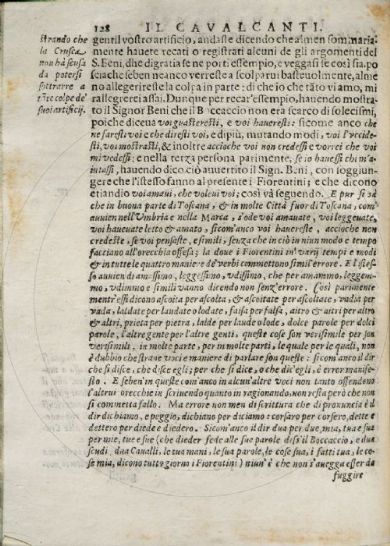 128 IL CAVALCANTI.
strando che
la Crusca
non hà scusa
da potersi
sottrarre a
tāte colpe de'
suoi artificij.
gentil vostro artificio, andaste dicendo che almen sommaria-
mente hauete recati o registrati alcuni de gli argomenti del
S. Beni, dhe di gratia se ne porti essempio, e veggasi se così sia. po
scia che se ben ne anco verreste a scolparui basteuolmente, alme
no allegerireste la colpa in parte: di che io che tāto vi amo, mi
rallegrerei assai. Dunque per recar'essempio, hauendo mostra-
to il Signor Beni che il Boccaccio non era scarso di solecismi,
poiche diceua voi gia steresti, e voi haueresti: si come anco che
ne faresti voi e che diresti voi, e dipiù, mutando modi, voi l'vccide-
sti, voi mostrasti, & inoltre acciocche voi non credessi e vorrei che voi
mi vedessi: e nella terza persona parimente, se io hauessi chi m'a-
iutassi, hauendo dico ciò auuertito il Sign. Beni, con soggiun-
gere che l'istesso fanno al presente i Fiorentini, e che dicono
etiandio voi amaui, che voleui voi; così và seguendo. E pur si sà
che in buona parte di Toscana, & in molte Città fuor di Toscana, com'
auuien nell'Vmbria e nella Marca, s'ode voi amauate, voi leggeuate,
voi haueuate letto & amato, sicom'anco voi haureste, acciocche non
credeste, se voi pensaste, e simili, senza che in ciò in niun modo e tempo
facciano all'orecchia offesa; la doue i Fiorentini in varij tempi e modi
& in tutte le quattro maniere de' verbi commettono simil'errore. E l'istes-
so auuien di amassimo, leggessimo, vdissimo, che per amammo, leggem-
mo, vdimmo e simili vanno dicendo non senz'errore. Così parimente
ment'essi dicono ascoita per ascolta, & ascoitate per ascoltate, vadia per
vada, laldate per laudate o lodate, faisa per falsa, aitro & aitri per altro
& altri, prieta per pietra, lalde per laude o lode, dolce parole per dolci
parole, l'altre gente per l'altre genti. queste cose son verisimile per son
verisimili, in molte parte, per in molte parti, le quale per le quali, non
è dubbio che strane voci e maniere di parlare son queste: sicom'anco il dir
che si disce, che disce egli; per che si dice, o che dic'egli, è error manife-
sto. E se ben'in queste com'anco in alcun'altre voci non tanto offendono
l'altrui orecchie in scriuendo quanto in ragionando, non resta però che non
si commetta fallo. Ma errore non men di scrittura che di pronuncia è il
dir dichiano, e peggio, dichiano per diciamo: corsaro per corsero, dette e
dettero per diede e diedero. Sicom'anco il dir dua per due, mia, tua e sua
per mie, tue e sue (che dieder fede alle sue parole diss'il Boccaccio, e dua
scudi, dua Caualli, le tua mani, le sua parole, le cose sua, i fatti tua, le co-
se mia, dicono tutto giorno i Fiorentini) niun'è che non s'auegga esser da
fuggire